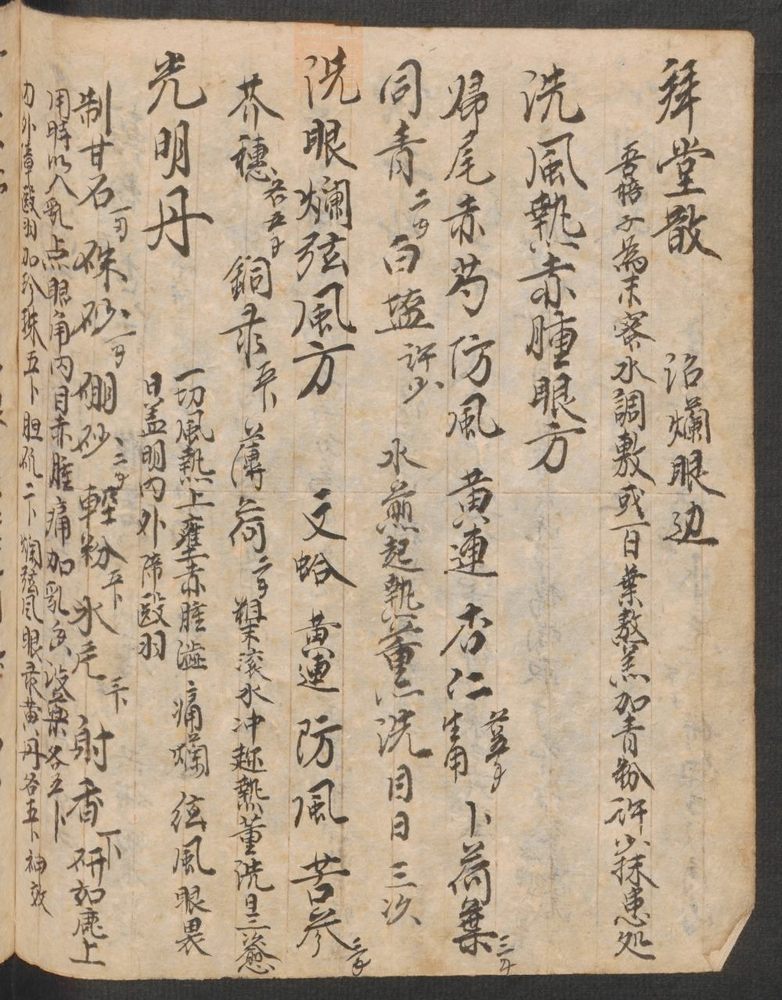 拜堂散　治爛眼边
吾悟子為末蜜水調敷或百葉熬羔加青粉許少抹患処
洗風熱赤腫眼方
歸尾赤芍防風黄連杏仁生用卜荷葉三分
同青二分白塩許少　水煎起熱薰洗目日三次
洗眼爛弦風方　文蛤黄連防風苦参
芥穗各五分銅彔五卜薄荷二分　滚水冲趂熱董洗日三愈
光明丹　一切風熱上壅赤腫澁痛爛弦風眼畏
日羞明内外障翳羽
制甘石一分硃砂一分硼砂二分軽粉五卜氷片三卜射香一卜研如塵上
用時以人乳点眼角内目赤腫痛加乳香没薬各五卜
内外章翳羽加珍珠五卜胆矾二卜爛弦風眼彔黄丹各五卜神效